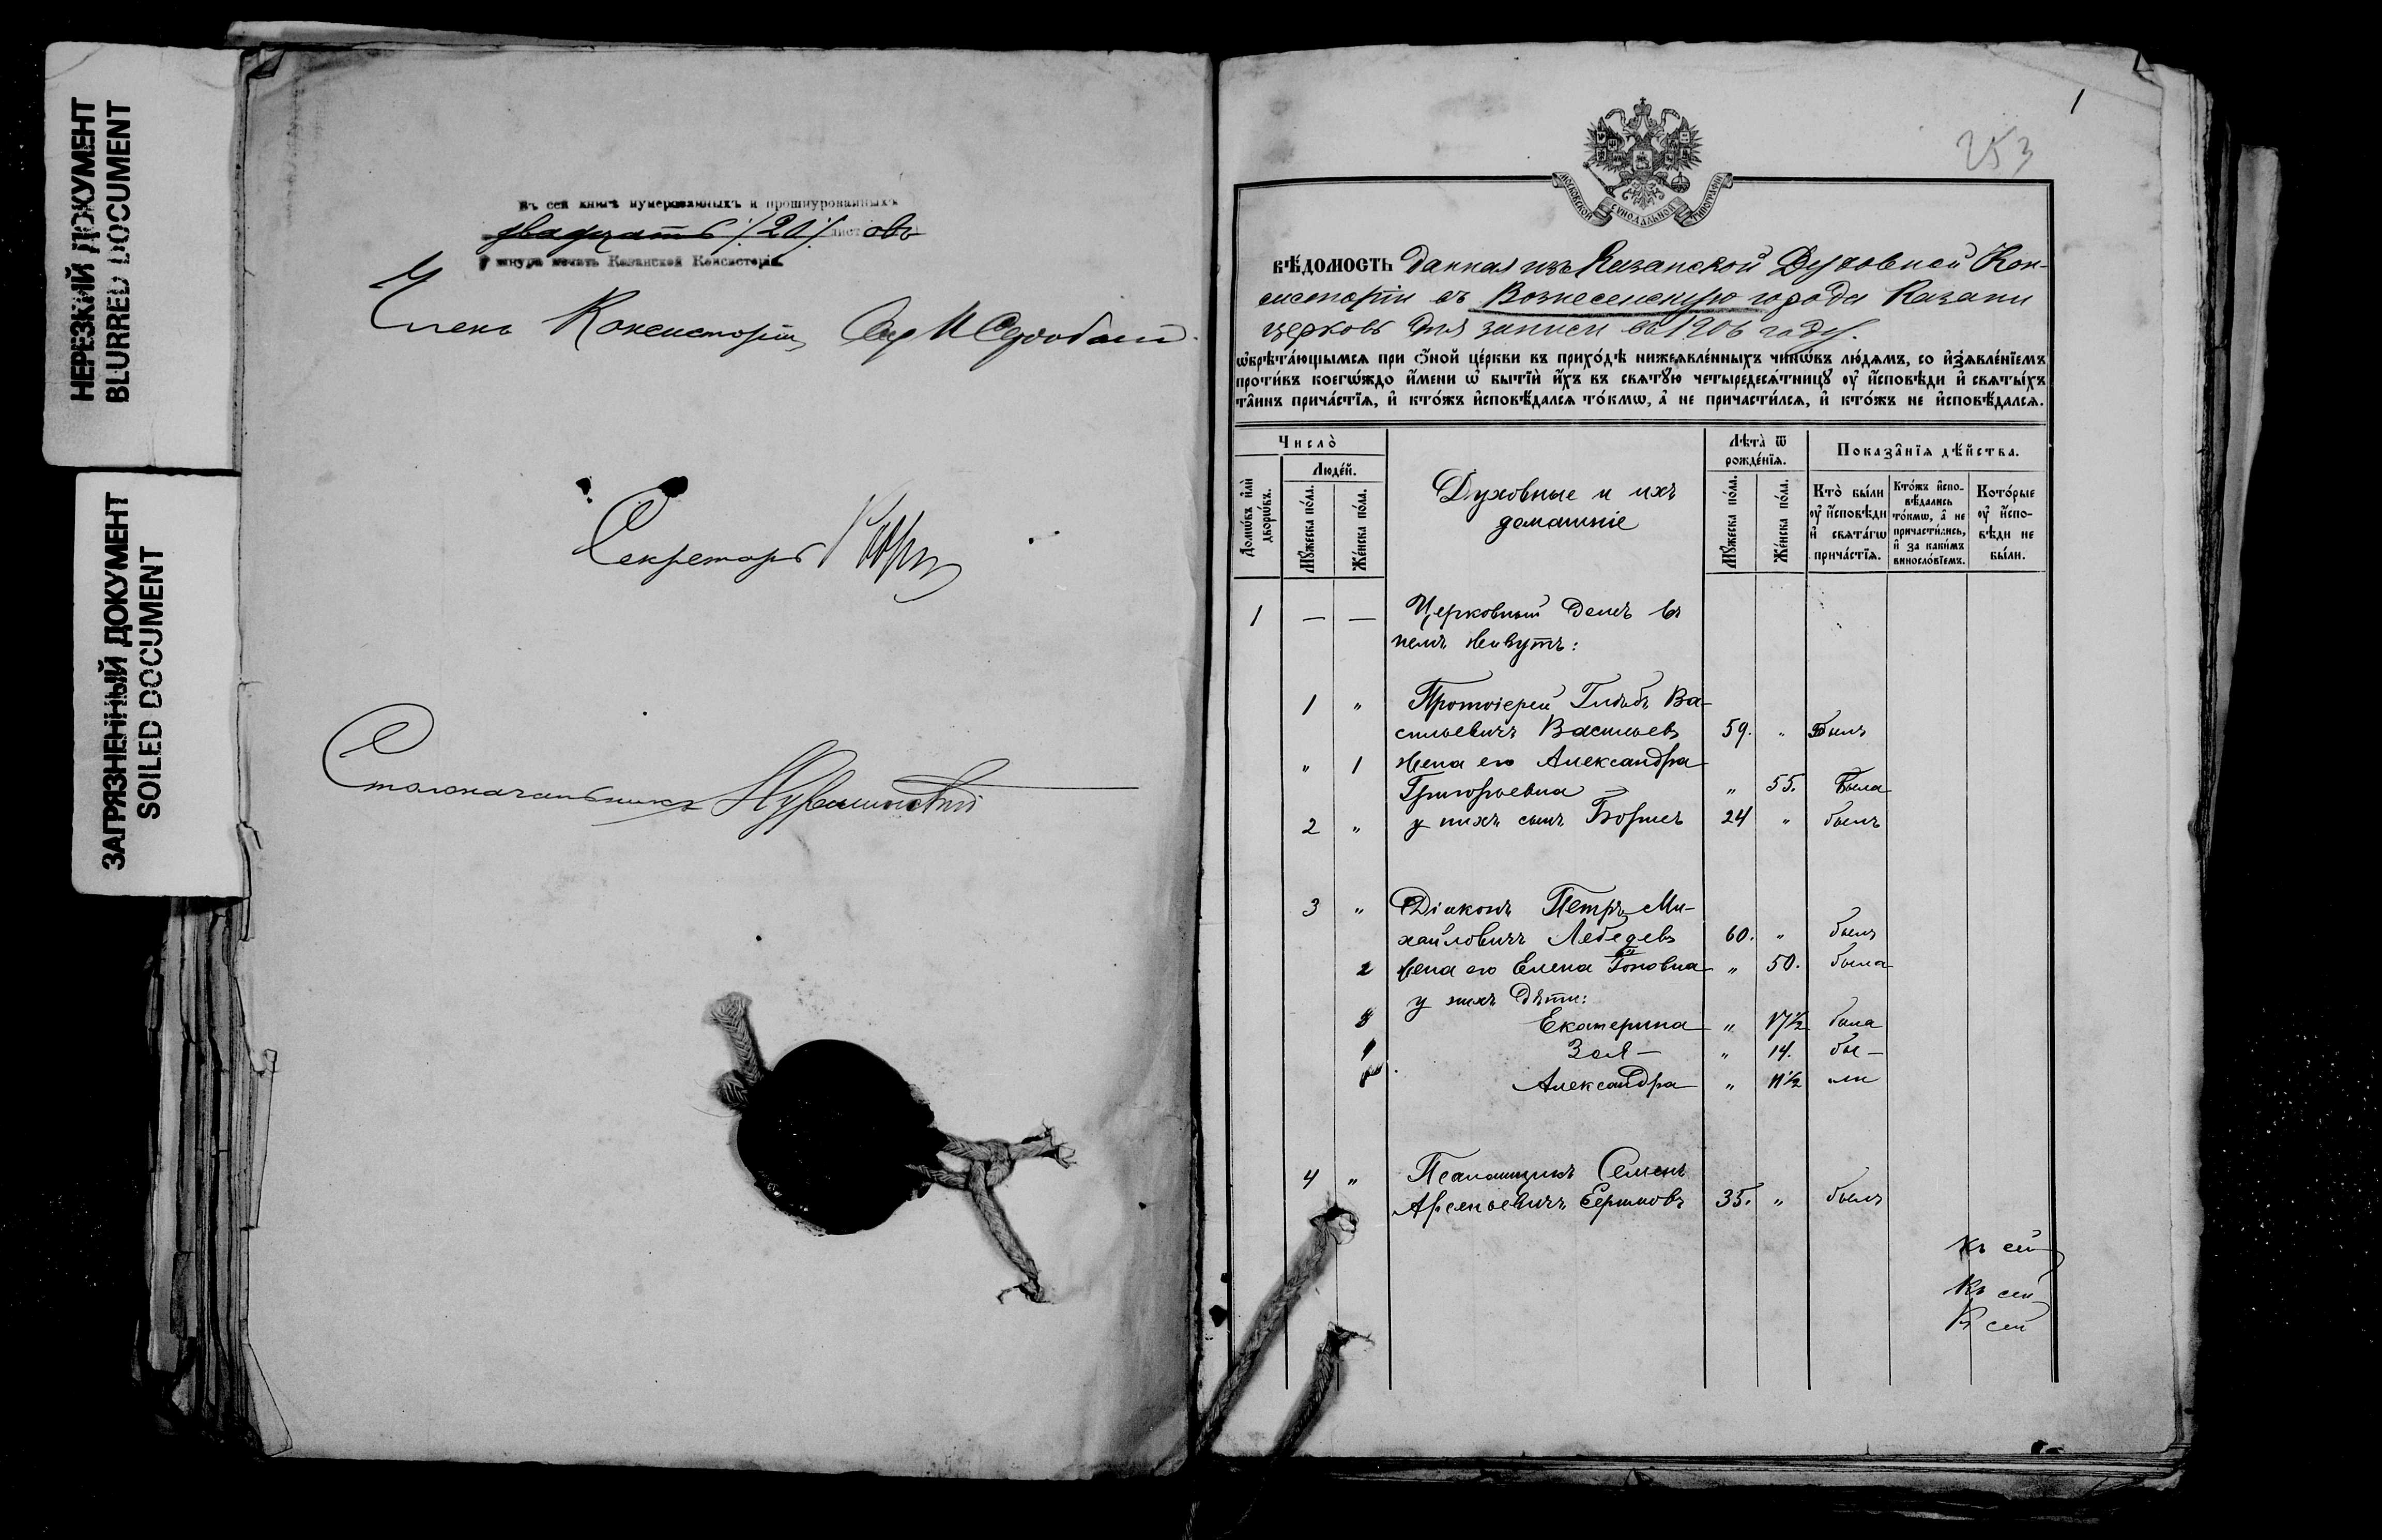 НЕРЕЗКИЙ ДОКУМЕНТ
BLURRED DOCUMENT
ЗАГРЯЗНЕННЫЙ ДОКУМЕНТ
SOILED DOCUMENT
Въ сей книгѣ нумерованныхъ и прошнурованныхъ
двадцать /20/ листовъ
У шнура печать Казанской Консисторіи.
Членъ Консисторіи
Секретарь
Столоначальникъ
1
253
МОСКОВСКОЙ СѴНОДАЛЬНОЙ ТИПОГРАФІИ
ВѢДОМОСТЬ данная изъ Казанской Духовной Кон-
систоріи въ Вознесенскую города Казани
церковь для записи въ 1906 году.
ѡ҆брѣта́ющымсѧ при ѻ҆́ной це́ркви въ прихо́дѣ нижеꙗвле́нныхъ чинѡ́въ лю́дѧмъ, со и҆з̾ѧвле́нїемъ
проти́въ коегѡ́ждо и҆́мени ѡ҆ бытїѝ и҆́хъ въ свѧтꙋ́ю четыредесѧ́тницꙋ оу҆ и҆́сповѣди и҆ свѧты́хъ
та̑инъ прича́стїѧ, и҆ кто́жъ и҆сповѣ́далсѧ то́кмѡ, а҆ не причасти́лсѧ, и҆ кто́жъ не и҆сповѣ́далсѧ.
Число̀
Люде́й.
Домѡ́въ и҆лѝ дворѡ́въ.
Мꙋ́жеска по́ла.
Же́нска по́ла.
Духовные и ихъ
домашніе
Лѣта̀ ѿ рожде́нїѧ.
Мꙋ́жеска по́ла.
Же́нска по́ла.
Показа̑нїѧ дѣ́йства.
Кто̀ бы́ли оу҆ и҆́сповѣди и҆ свѧта́гѡ прича́стїѧ.
Кто́жъ и҆спо-вѣ́дались то́кмѡ, а҆ не причасти́лись, и҆ за каки́мъ винословїемъ.
Кото́рые оу҆ и҆́спо-вѣди не бы́ли.
1 — — Церковный домъ въ
немъ живутъ:
1 " Протоіерей Глѣбъ Ва-
сильевичъ Васильевъ 59. " былъ
" 1 жена его Александра
Григорьевна " 55. была
2 " у нихъ сынъ Борисъ 24 " былъ
3 " Діаконъ Петръ Ми-
хайловичъ Лебедевъ 60. " былъ
2 жена его Елена " 50. была
у нихъ дѣти:
3 Екатерина " 17½ была
Зоя — " 14. бы —
Александра " 11½ ли
4 " Псаломщикъ Семенъ
Арсеньевичъ 35. " былъ
Къ сей
Къ сей
Къ сей